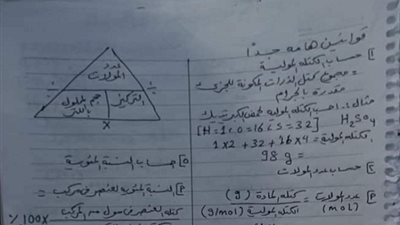 قوانين هامه جداً
١] حساب الكتله المولية
= مجموع كتل الذرات المكونة للجزئ
مقدرة بالجرام
مثال: احسب الكتله المولية لحمض الكبريتيك
H₂SO₄ [H=1, O=16, S=32]
الكتله المولية = 1×2 + 32 + 16×4
= 98 g
٢] حساب عدد المولات
عدد المولات (mol) = كتله المادة (g)
الكتله المولية (g/mol)
عدد المولات
÷ ÷
التركيز
حجم المحلول باللتر
×
حساب النسبة المئوية
النسبة المئوية لعنصر فى مركب =
كتله العنصر فى مول من المركب
×100 %